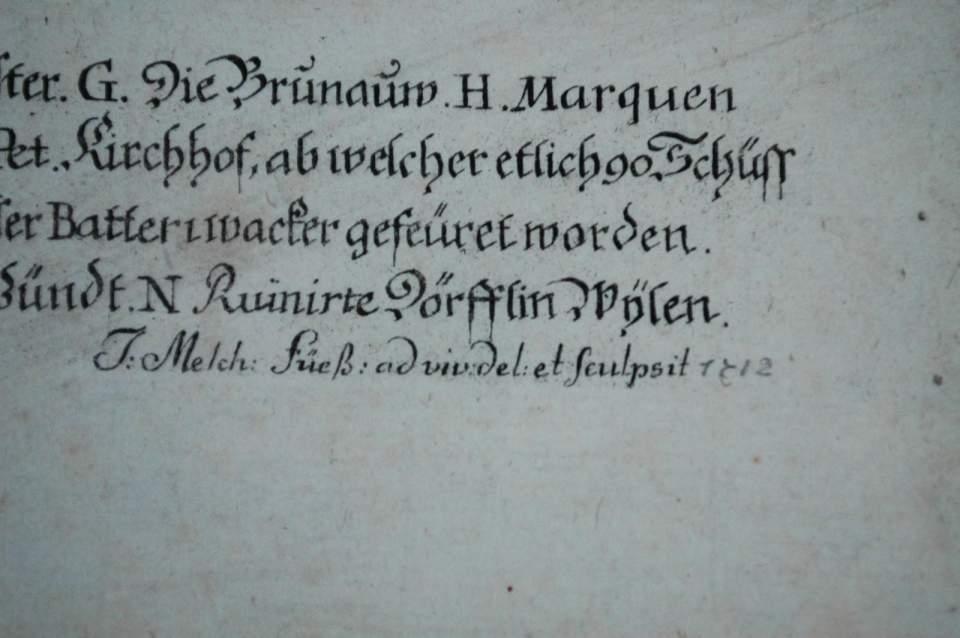 ster. G. Die Brŭnaŭw. H. Marquen
Pet. Kirchhof, ab welcher etlich 90 Schüss
ser Batteri wacker gefeüret worden.
Bündt. N Ruinirte Dörfflin Wÿlen.
J: Melch: Füeß: ad viv: del: et sculpsit 1712